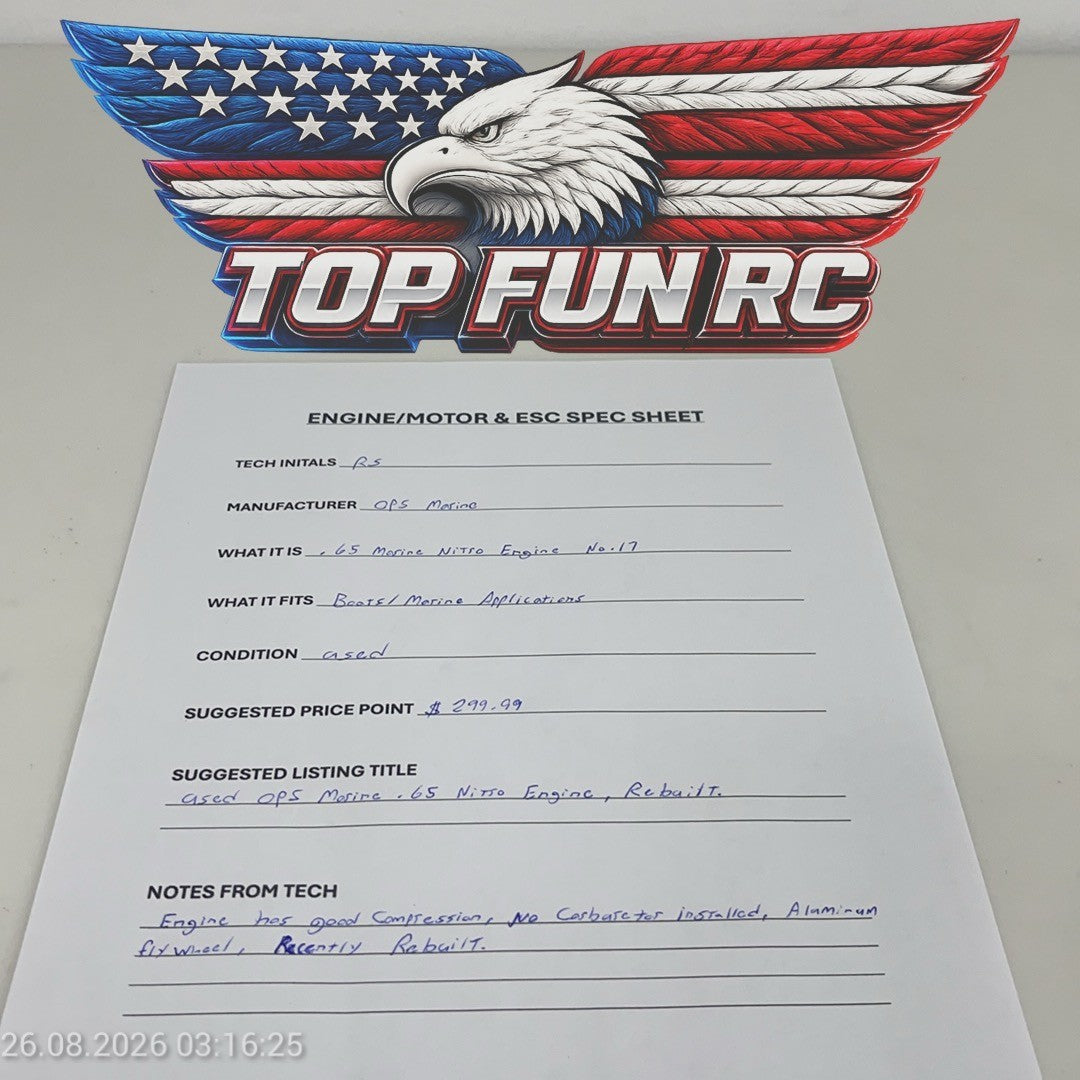 TOP FUN RC
ENGINE/MOTOR & ESC SPEC SHEET
TECH INITALS RS
MANUFACTURER OPS Marine
WHAT IT IS .65 Marine Nitro Engine No.17
WHAT IT FITS Boats/Marine Applications
CONDITION used
SUGGESTED PRICE POINT $ 299.99
SUGGESTED LISTING TITLE
used OPS Marine .65 Nitro Engine, Rebuilt.
NOTES FROM TECH
Engine has good Compression, No Carburetor installed, Aluminum
flywheel, Recently Rebuilt.
26.08.2026 03:16:25